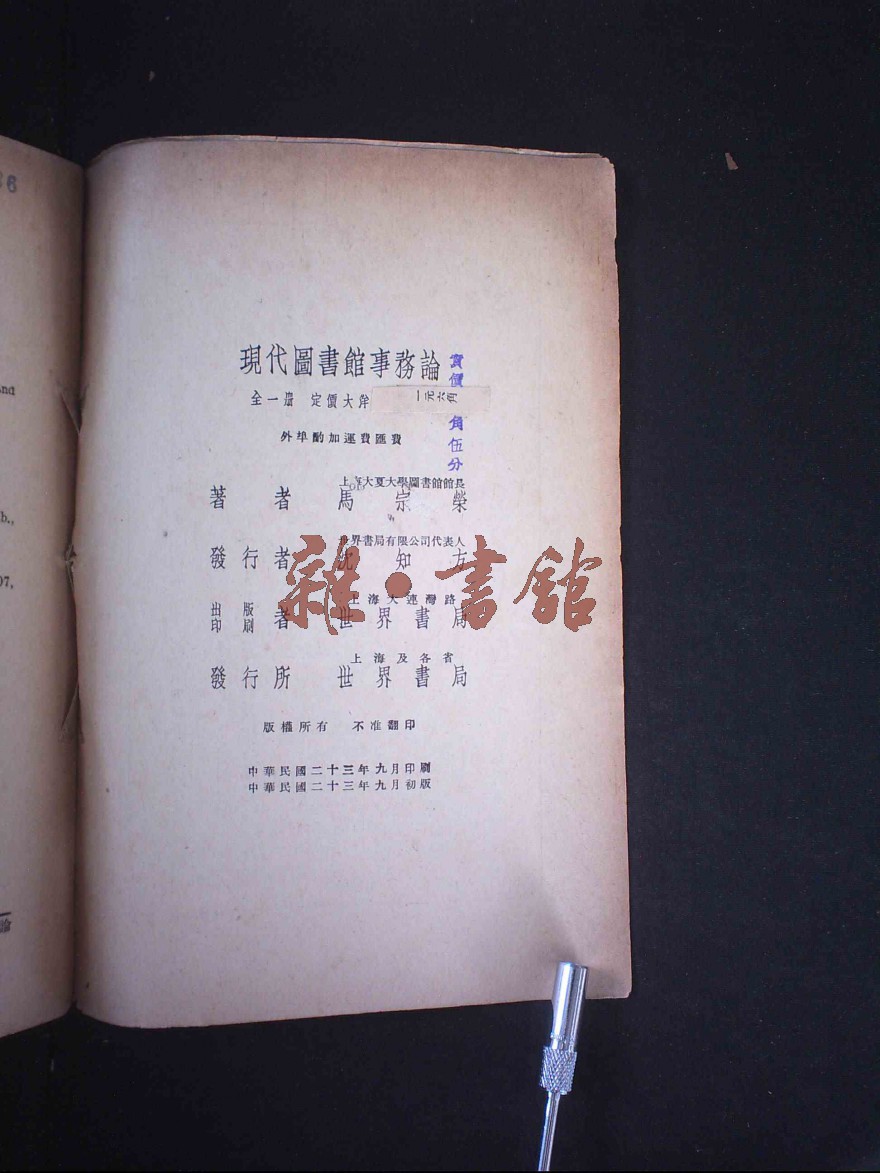 現代圖書館事務論
全一册 定價大洋 一元六角
實價 角伍分
外埠酌加運費匯費
上海大夏大學圖書館館長
著者 馬宗榮
世界書局有限公司代表人
發行者 沈知方
上海大連灣路
出版印刷者 世界書局
上海及各省
發行所 世界書局
版權所有 不准翻印
中華民國二十三年九月印刷
中華民國二十三年九月初版
雜·書館
36
and
b.,
07,
論